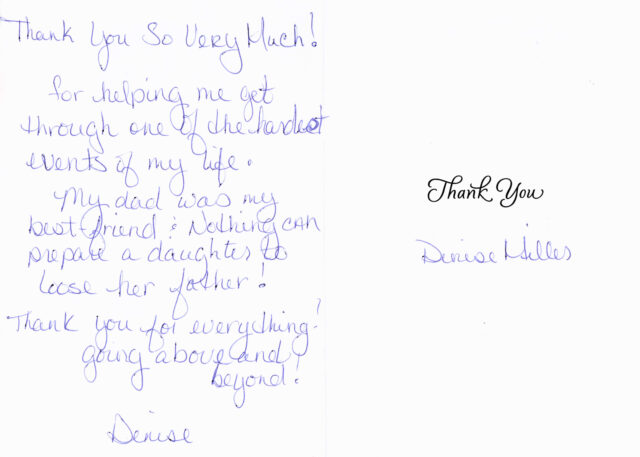 Thank You So Very Much!
for helping me get
through one of the hardest
events of my life.
My dad was my
best friend & Nothing can
prepare a daughter to
loose her father!
Thank you for everything!
going above and
beyond!
Denise
Thank You
Denise Hilles